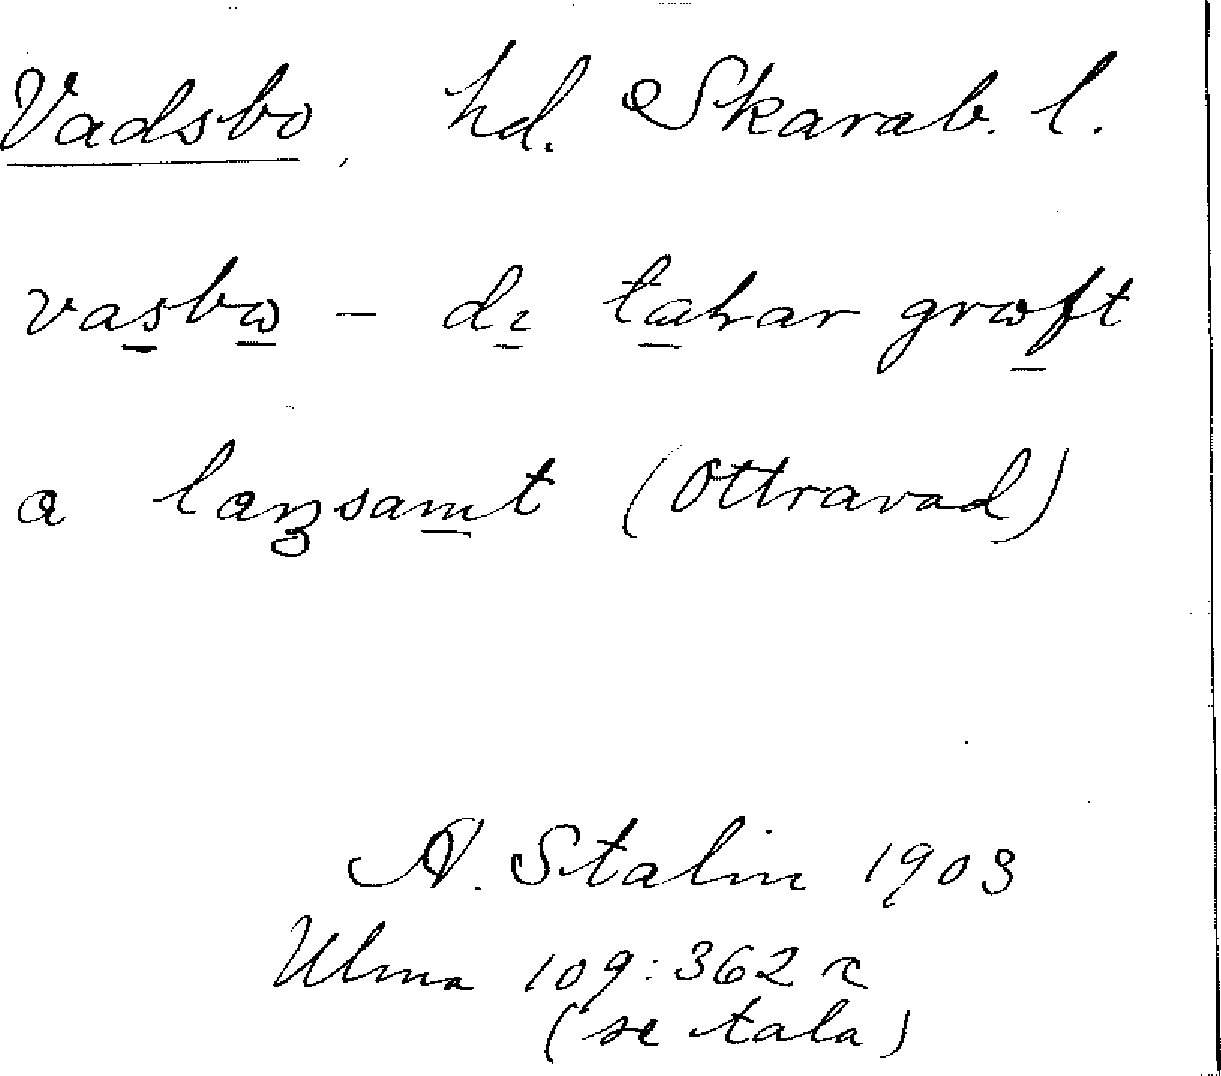 Vadsbo, hd. Skarab. l.
vasbω – dɩ taƚar grωft
a laŋsamt (Ottravad)
A. Stalin 1903
Ulma 109:362 r
(se tala)